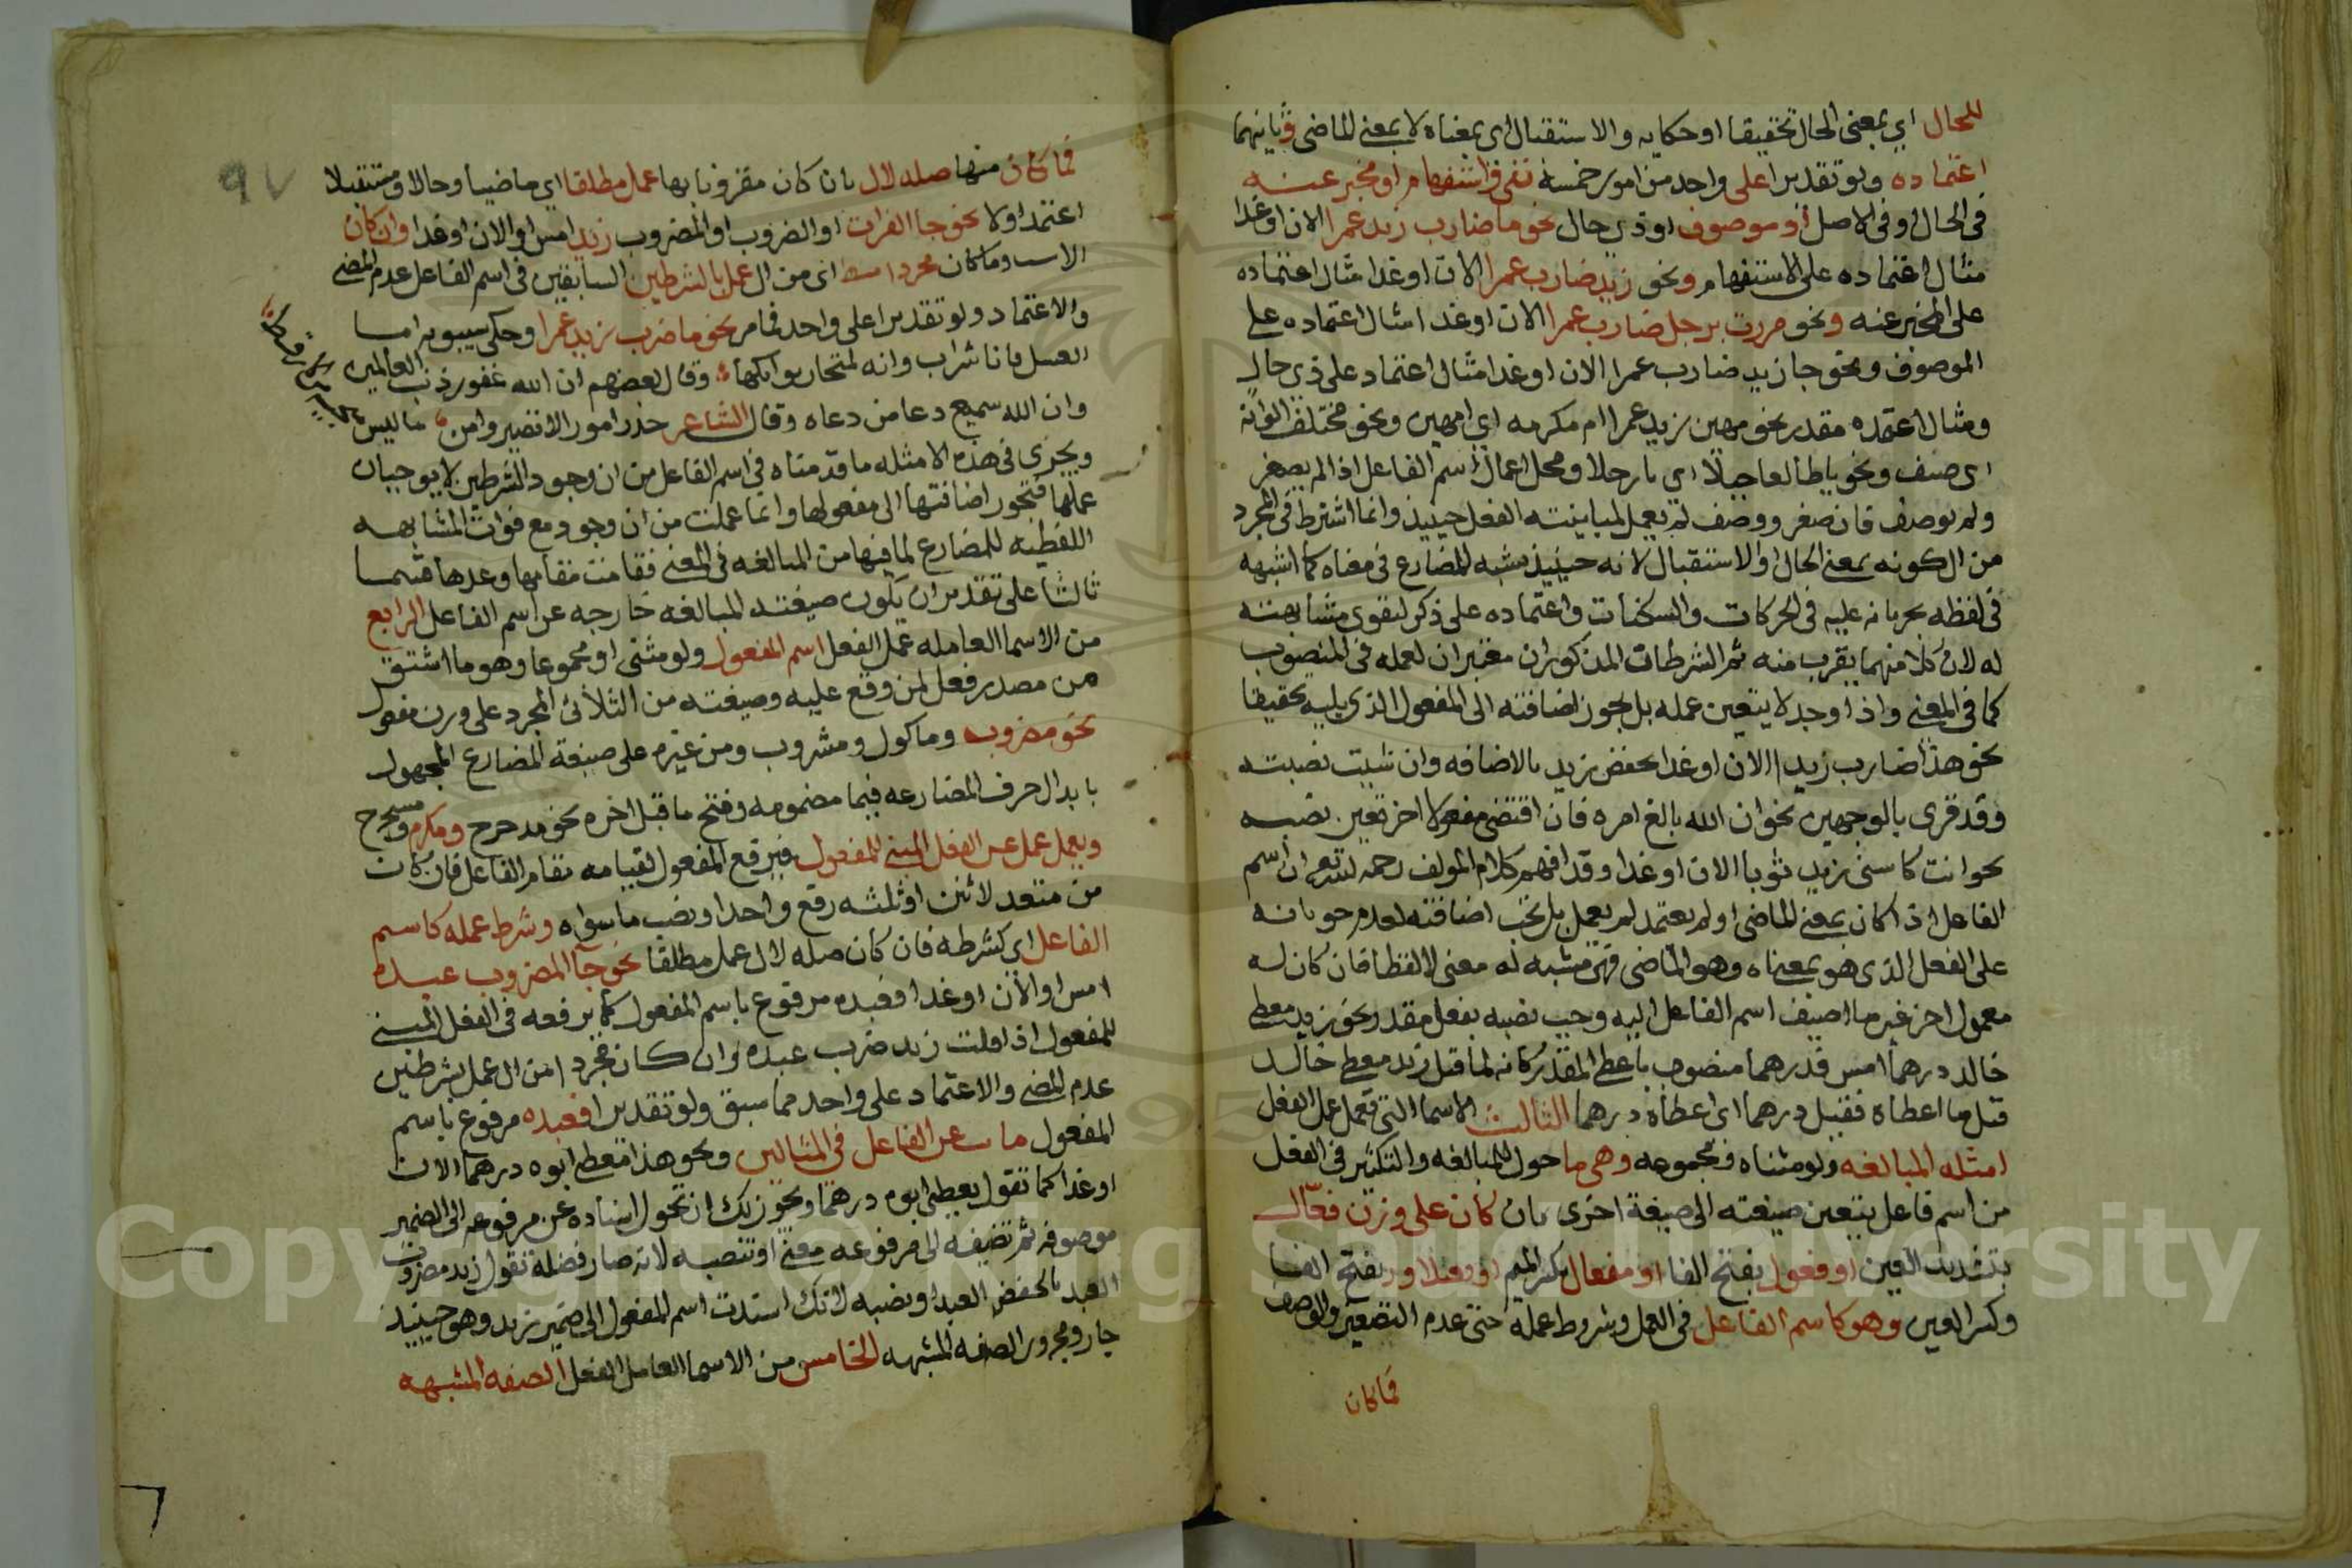 للحال اي بمعنى الحال تحقيقا او حكايه والاستقبال اي بمعناه لا بمعنى الماضي وثانيهما
اعتماده ولو تقديرا على واحد من امور خمسة نفي او استفهام او مخبر عنه
في الحال او في الاصل او موصوف او ذي حال نحو ما ضارب زيد عمرا الان او غدا
مثال اعتماده على الاستفهام ونحو زيد ضارب عمرا الان او غدا مثال اعتماده
على المخبر عنه ونحو مررت برجل ضارب عمرا الان او غدا مثال اعتماده على
الموصوف ونحو جا زيد ضارب عمرا الان او غدا مثال اعتماد على ذي حال
ومثال اعتمده مقدر نحو مهين زيد عمرا ام مكرمه اي امهين ونحو مختلف الوانه
اي صنف ونحو يا طالعا جبلا اي يا رجلا ومحل اعمال اسم الفاعل اذا لم يصغر
ولم يوصف فان صغر ووصف لم يعمل لمباينته الفعل حينيذ وانما اشترط في المجرد
من ال كونه بمعنى الحال او الاستقبال لانه حينيذ يشبه المضارع في معناه كما اشبهه
في لفظه بجريانه عليه في الحركات والسكنات واعتماده على ذكر لتقوى مشابهته
له لان كلا منهما يقرب منه ثم الشرطان المذكوران معتبران لعمله في المنصوب
كما في المعنى واذا وجد لا يتعين عمله بل يجوز اضافته الى المفعول الذي يليه تحقيقا
نحو هذا ضارب زيد الان او غدا بخفض زيد بالاضافه وان شيت نصبته
وقد قرى بالوجهين نحو ان الله بالغ امره فان اقتضى مفعولا اخر تعين نصبه
نحو انت كاسي زيد ثوبا الان او غدا وقد افهم كلام المولف رحمه الله تعالى ان اسم
الفاعل اذا كان بمعنى الماضي او لم يعتمد لم يعمل بل تجب اضافته لعدم جريانه
على الفعل الذي هو بمعناه وهو الماضي فهو مشبه له معنى لا لفظا فان كان له
معمول اخر غير ما اضيف اسم الفاعل اليه وجب نصبه بفعل مقدر نحو زيد معطي
خالد درهما امس فدرهما منصوب باعطى المقدر كانه لما قيل زيد معطي خالد
قيل ما اعطاه فقيل درهما اي اعطاه درهما الثالث الاسما التي تعمل عمل الفعل
امثله المبالغه ولو مثناه ومجموعه وهي ما حول للمبالغه والتكثير في الفعل
من اسم فاعل بتعين صيغته الى صيغة اخرى بان كان على وزن فعال
بتشديد العين او فعول بفتح الفا او مفعال بكسر الميم بفتح الفا
وكسر العين وهو كاسم الفاعل في العمل وشروط عمله حتى عدم التصغير والوصف
فما كان
97
فما كان منها صله لال بان كان مقرونا بها عمل مطلقا اي ماضيا وحالا ومستقبلا
اعتمد او لا نحو جا الضراب او الضروب او المضروب زيد امس او الان او غدا وان كان
مجردا منها اي من ال عمل بالشرطين السابقين في اسم الفاعل عدم المضي
والاعتماد ولو تقديرا على واحد مما مر نحو ما ضرب زيد عمرا وحكى سيبويه اما
العسل فانا شراب وانه لمنحار بوايكها وقال بعضهم ان الله غفور ذنب العالمين
وان الله سميع دعا من دعاه وقال الشاعر حذر امورا لا تضير وامن ما ليس
ويجزى في هذه الامثله ما قدمناه في اسم الفاعل من ان وجود الشرطين لا يوجبان
عملها فتجوز اضافتها الى مفعولها وانما عملت من ان وجود مع فوات المشابهه
اللفظيه للمضارع لما فيها من المبالغه في المعنى فقامت مقامها وعدها قسما
ثالثا على تقدير ان يكون صيغته المبالغه خارجه عن اسم الفاعل الرابع
من الاسما العامله عمل الفعل اسم المفعول ولو مثنى او مجموعا وهو ما اشتق
من مصدر فعل لمن وقع عليه وصيغته من الثلاثي المجرد على وزن مفعول
نحو مضروب وماكول ومشروب ومن غيره على صيغة المضارع المجهول
بابدال حرف المضارعه فيما مضمومه وفتح ما قبل اخره نحو مدحرج ومكرم
ويعمل عمل الفعل المبني للمفعول فيرفع المفعول لقيامه مقام الفاعل فان كان
من متعد لاثنين او ثلثه رفع واحدا ونصب ما سواه وشرط عمله كاسم
الفاعل اي كشرطه فان كان صله لال عمل مطلقا نحو جا المضروب عبده
امس او الان او غدا فعبده مرفوع باسم المفعول كما يرفعه في الفعل المبني
للمفعول اذا قلت زيد ضرب عبده وان كان مجردا من ال عمل بشرطين
عدم المضي والاعتماد على واحد مما سبق ولو تقديرا فعبده مرفوع باسم
المفعول عن الفاعل في المثالين ونحو هذا معطى ابوه درهما الان
او غدا كما تقول يعطى ابوه درهما ويجوز لك ان تحول اسناده عن مرفوعه الى الضمير
موصوفه ثم تضيفه الى مرفوعه معنى او تنصبه لانه صار فضله تقول زيد مضروب
العبد بالخفض العبد او نصبه لانك اسندت اسم المفعول الى ضمير زيد وهو حينيذ
جار ومجرور الصفه المشبهه الخامس من الاسما العامل الفعل الصفه المشبهه
Copyright © King Saud University